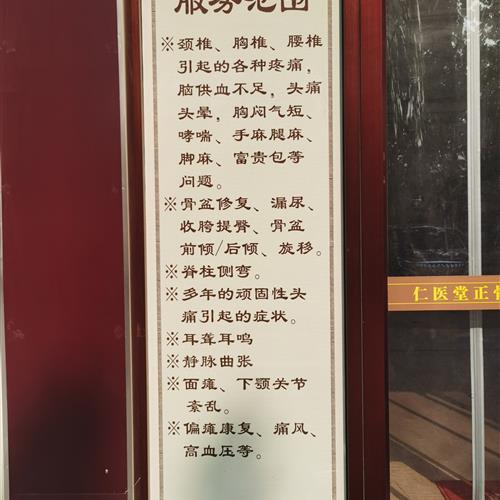 服务范围
※颈椎、胸椎、腰椎
引起的各种疼痛，
脑供血不足，头痛
头晕，胸闷气短、
哮喘、手麻腿麻、
脚麻、富贵包等
问题。
※骨盆修复、漏尿、
收胯提臀、骨盆
前倾/后倾、旋移。
※脊柱侧弯。
※多年的顽固性头
痛引起的症状。
※耳聋耳鸣
※静脉曲张
※面瘫、下颚关节
紊乱。
※偏瘫康复、痛风、
高血压等。
仁医堂正骨